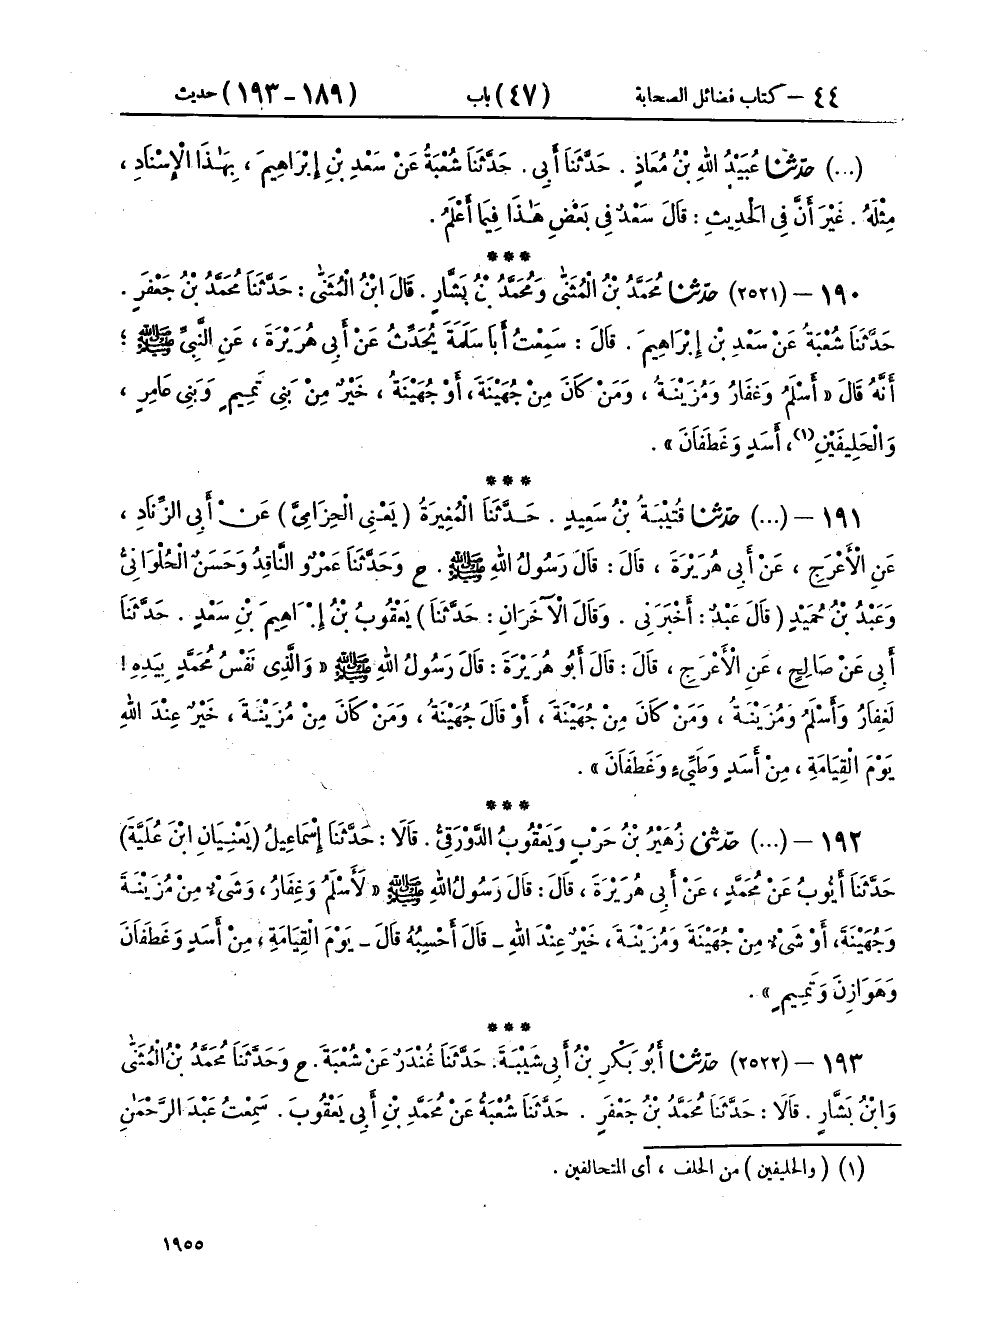 ٤٤ – كتاب فضائل الصحابة (٤٧) باب (١٨٩–١٩٣) حديث
(...) حدّثنا عُبَيْدُ اللهِ بْنُ مُعَاذٍ . حَدَّثَنَا أَبِي . حَدَّثَنَا شُعْبَةُ عَنْ سَعْدِ بْنِ إِبْرَاهِيمَ ، بِهَٰذَا الْإِسْنَادِ ،
مِثْلَهُ . غَيْرَ أَنَّ فِي الْحَدِيثِ : قَالَ سَعْدٌ فِي بَعْضِ هَٰذَا فِيمَا أَعْلَمُ .
***
١٩٠ – (٢٥٢١) حدّثنا مُحَمَّدُ بْنُ الْمُثَنَّىٰ وَمُحَمَّدُ بْنُ بَشَّارٍ . قَالَ ابْنُ الْمُثَنَّىٰ : حَدَّثَنَا مُحَمَّدُ بْنُ جَعْفَرٍ .
حَدَّثَنَا شُعْبَةُ عَنْ سَعْدِ بْنِ إِبْرَاهِيمَ . قَالَ : سَمِعْتُ أَبَا سَلَمَةَ يُحَدِّثُ عَنْ أَبِي هُرَيْرَةَ ، عَنِ النَّبِيِّ ﷺ ؛
أَنَّهُ قَالَ « أَسْلَمُ وَغِفَارُ وَمُزَيْنَةُ ، وَمَنْ كَانَ مِنْ جُهَيْنَةَ، أَوْ جُهَيْنَةُ ، خَيْرٌ مِنْ بَنِي تَمِيمٍ وَبَنِي عَامِرٍ ،
وَالْحَلِيفَيْنِ(١)، أَسَدٍ وَغَطَفَانَ » .
***
١٩١ – (...) حدّثنا قُتَيْبَةُ بْنُ سَعِيدٍ . حَدَّثَنَا الْمُغِيرَةُ ( يَعْنِي الْحِزَامِيَّ ) عَنْ أَبِي الزِّنَادِ ،
عَنِ الْأَعْرَجِ ، عَنْ أَبِي هُرَيْرَةَ ، قَالَ : قَالَ رَسُولُ اللهِ ﷺ . ح وَحَدَّثَنَا عَمْرٌو النَّاقِدُ وَحَسَنٌ الْحُلْوَانِيُّ
وَعَبْدُ بْنُ حُمَيْدٍ ( قَالَ عَبْدٌ : أَخْبَرَنِي . وَقَالَ الْآخَرَانِ : حَدَّثَنَا ) يَعْقُوبُ بْنُ إِبْرَاهِيمَ بْنِ سَعْدٍ . حَدَّثَنَا
أَبِي عَنْ صَالِحٍ ، عَنِ الْأَعْرَجِ ، قَالَ : قَالَ أَبُو هُرَيْرَةَ : قَالَ رَسُولُ اللهِ ﷺ « وَالَّذِي نَفْسُ مُحَمَّدٍ بِيَدِهِ !
لَغِفَارُ وَأَسْلَمُ وَمُزَيْنَةُ ، وَمَنْ كَانَ مِنْ جُهَيْنَةَ ، أَوْ قَالَ جُهَيْنَةُ ، وَمَنْ كَانَ مِنْ مُزَيْنَةَ ، خَيْرٌ عِنْدَ اللهِ
يَوْمَ الْقِيَامَةِ ، مِنْ أَسَدٍ وَطَيِّيءٍ وَغَطَفَانَ » .
***
١٩٢ – (...) حدّثني زُهَيْرُ بْنُ حَرْبٍ وَيَعْقُوبُ الدَّوْرَقِيُّ . قَالَا : حَدَّثَنَا إِسْمَاعِيلُ (يَعْنِيَانِ ابْنَ عُلَيَّةَ)
حَدَّثَنَا أَيُّوبُ عَنْ مُحَمَّدٍ ، عَنْ أَبِي هُرَيْرَةَ ، قَالَ : قَالَ رَسُولُ اللهِ ﷺ « لَأَسْلَمُ وَغِفَارُ ، وَشَيْءٌ مِنْ مُزَيْنَةَ
وَجُهَيْنَةَ، أَوْ شَيْءٌ مِنْ جُهَيْنَةَ وَمُزَيْنَةَ ، خَيْرٌ عِنْدَ اللهِ – قَالَ أَحْسِبُهُ قَالَ – يَوْمَ الْقِيَامَةِ ، مِنْ أَسَدٍ وَغَطَفَانَ
وَهَوَازِنَ وَتَمِيمٍ » .
***
١٩٣ – (٢٥٢٢) حدّثنا أَبُو بَكْرِ بْنُ أَبِي شَيْبَةَ . حَدَّثَنَا غُنْدَرٌ عَنْ شُعْبَةَ . ح وَحَدَّثَنَا مُحَمَّدُ بْنُ الْمُثَنَّىٰ
وَابْنُ بَشَّارٍ . قَالَا : حَدَّثَنَا مُحَمَّدُ بْنُ جَعْفَرٍ . حَدَّثَنَا شُعْبَةُ عَنْ مُحَمَّدِ بْنِ أَبِي يَعْقُوبَ . سَمِعْتُ عَبْدَ الرَّحْمَٰنِ
(١) ( والحليفين ) من الحلف ، أى المتحالفين .
١٩٥٥